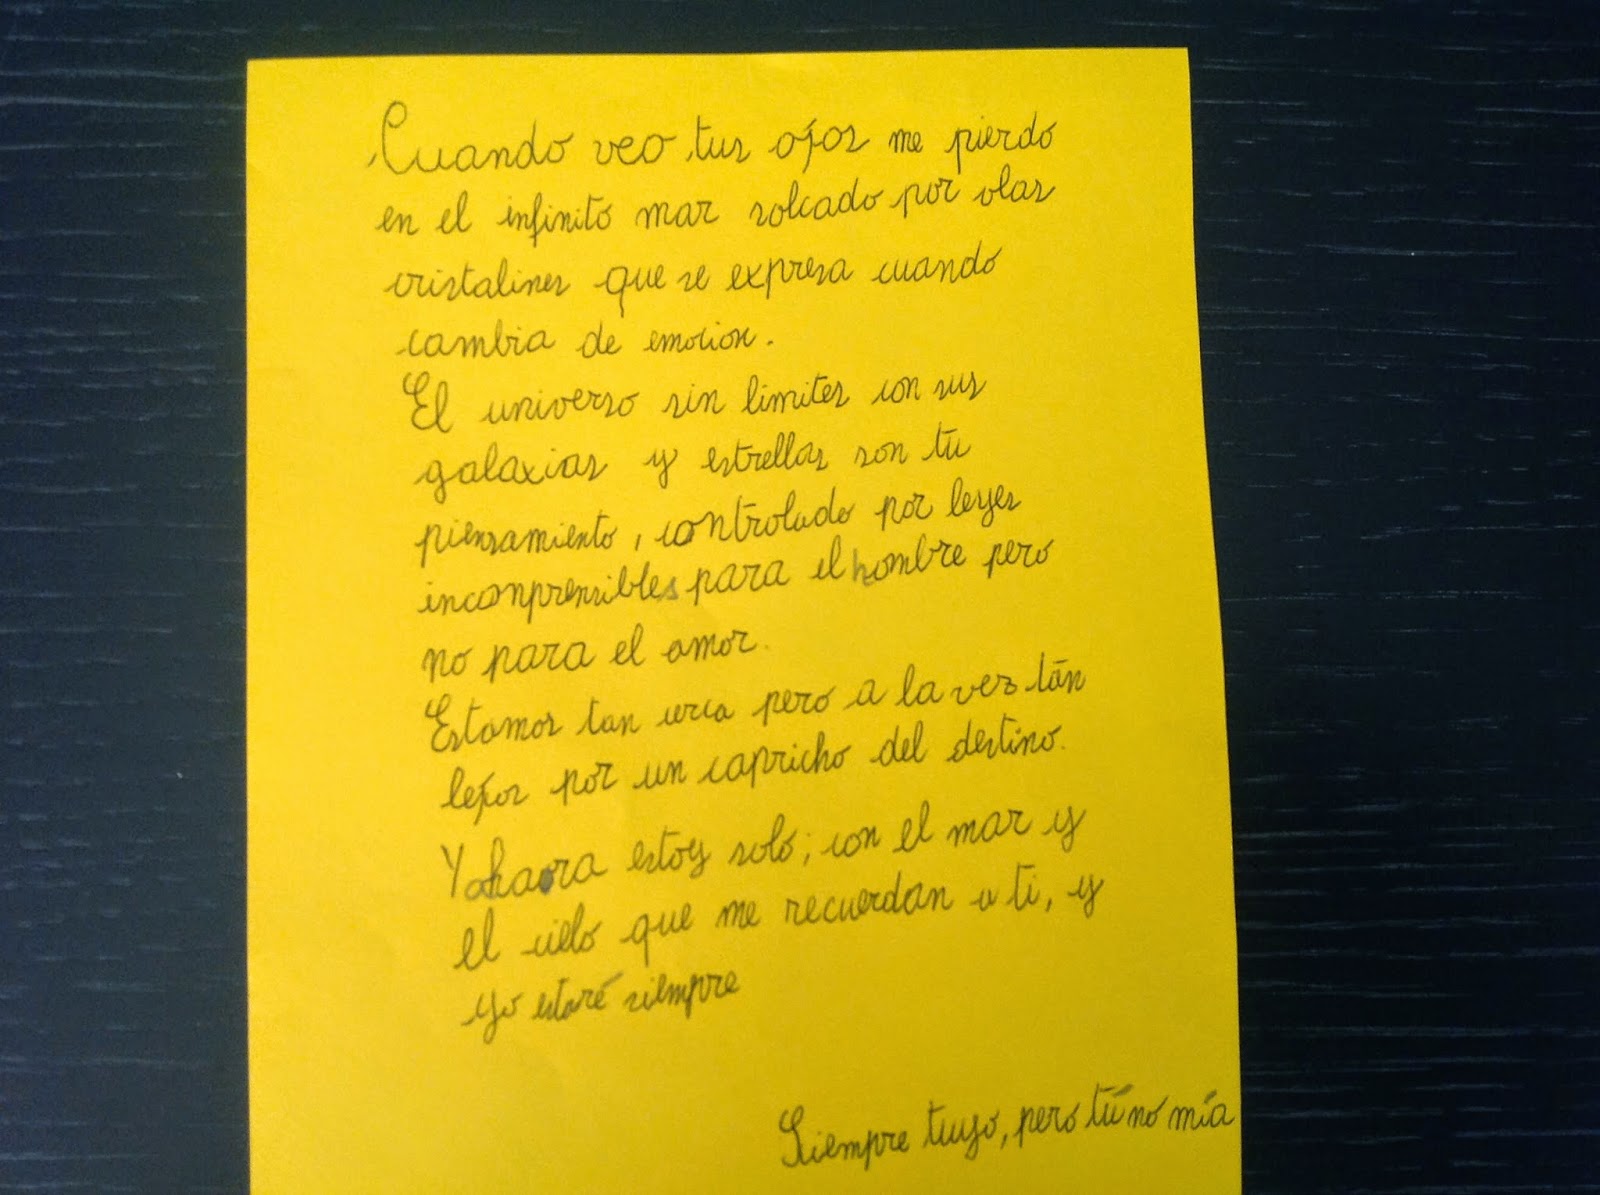 Cuando veo tus ojos me pierdo
en el infinito mar solcado por olas
cristalines que se expresa cuando
cambia de emocion.
El universo sin limites con sus
galaxias y estrellas son tu
piensamiento, controlado por leyes
inconprensibles para el hombre pero
no para el amor.
Estamos tan cerca pero a la vez tán
lejos por un capricho del destino.
Y ahaora estoy solo; con el mar y
el cielo que me recuerdan a ti, y
yo estaré siempre
Siempre tuyo, pero tú no mía